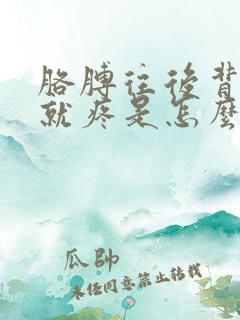 胳膊往後背
就疼是怎麼
瓜帥
未经同意禁止转载